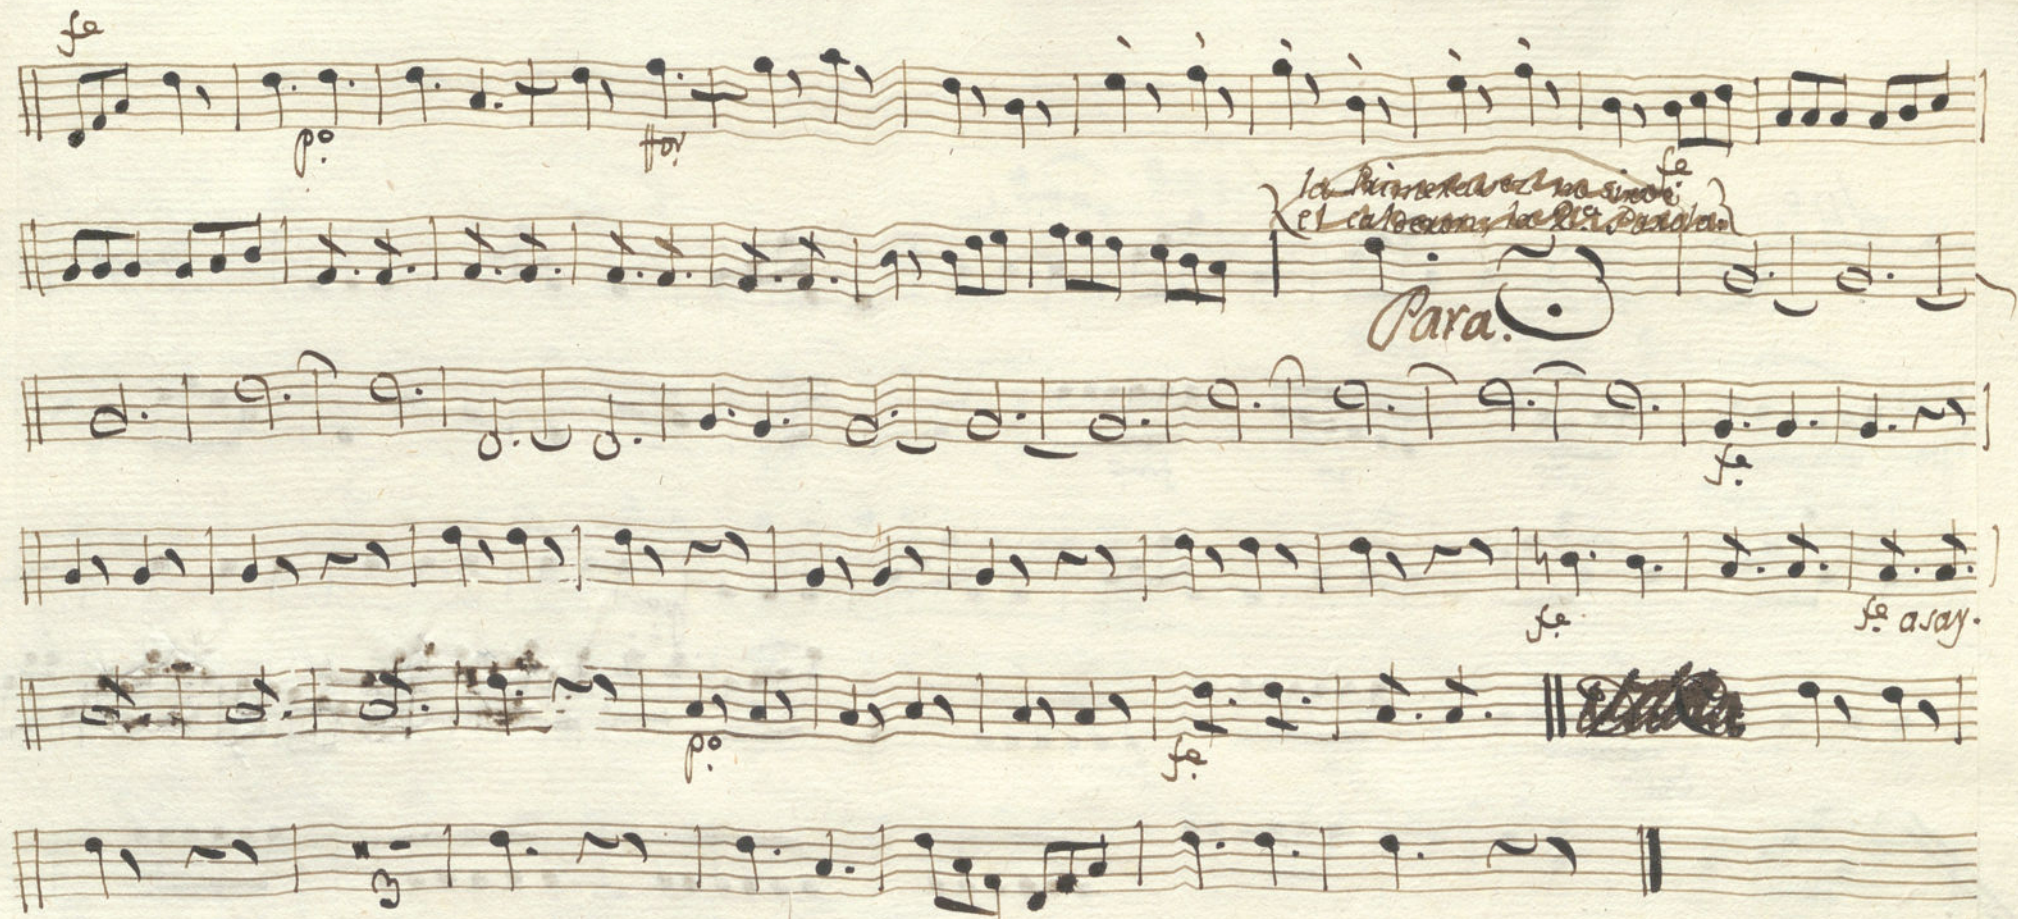 fe
po ffor
fe
la Primera vez no sirve
el calderon, la 2ª Parola.
Para.
fe
fe fe asay.
po fe
3